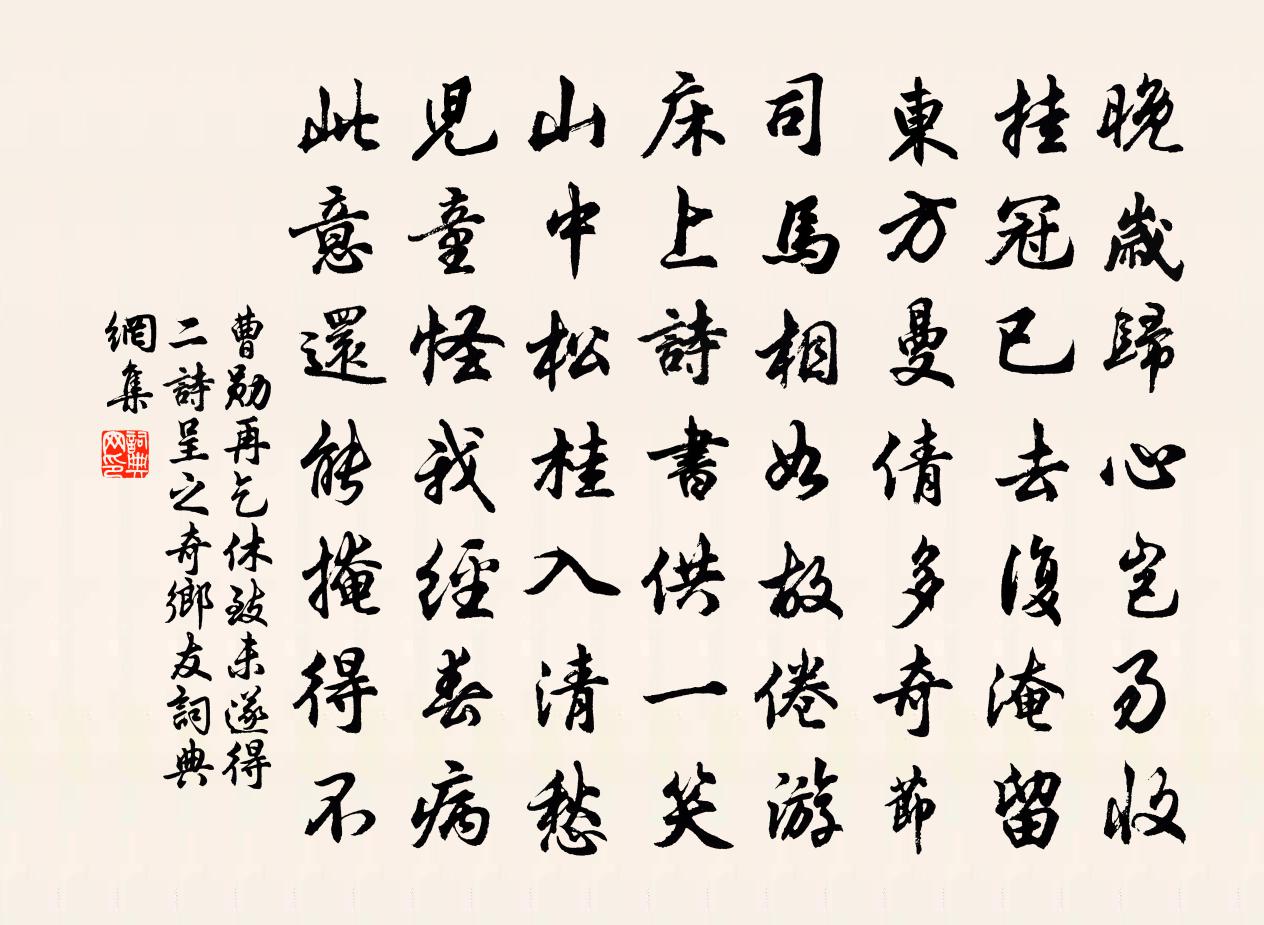 晚歲歸心豈易收
挂冠已去復淹留
東方曼倩多奇節
司馬相如故倦游
床上詩書供一笑
山中松桂入清愁
兒童怪我經春病
此意還能掩得不
曹勛再乞休致未遂得
二詩呈之奇鄉友詞典
網集
詞典網印